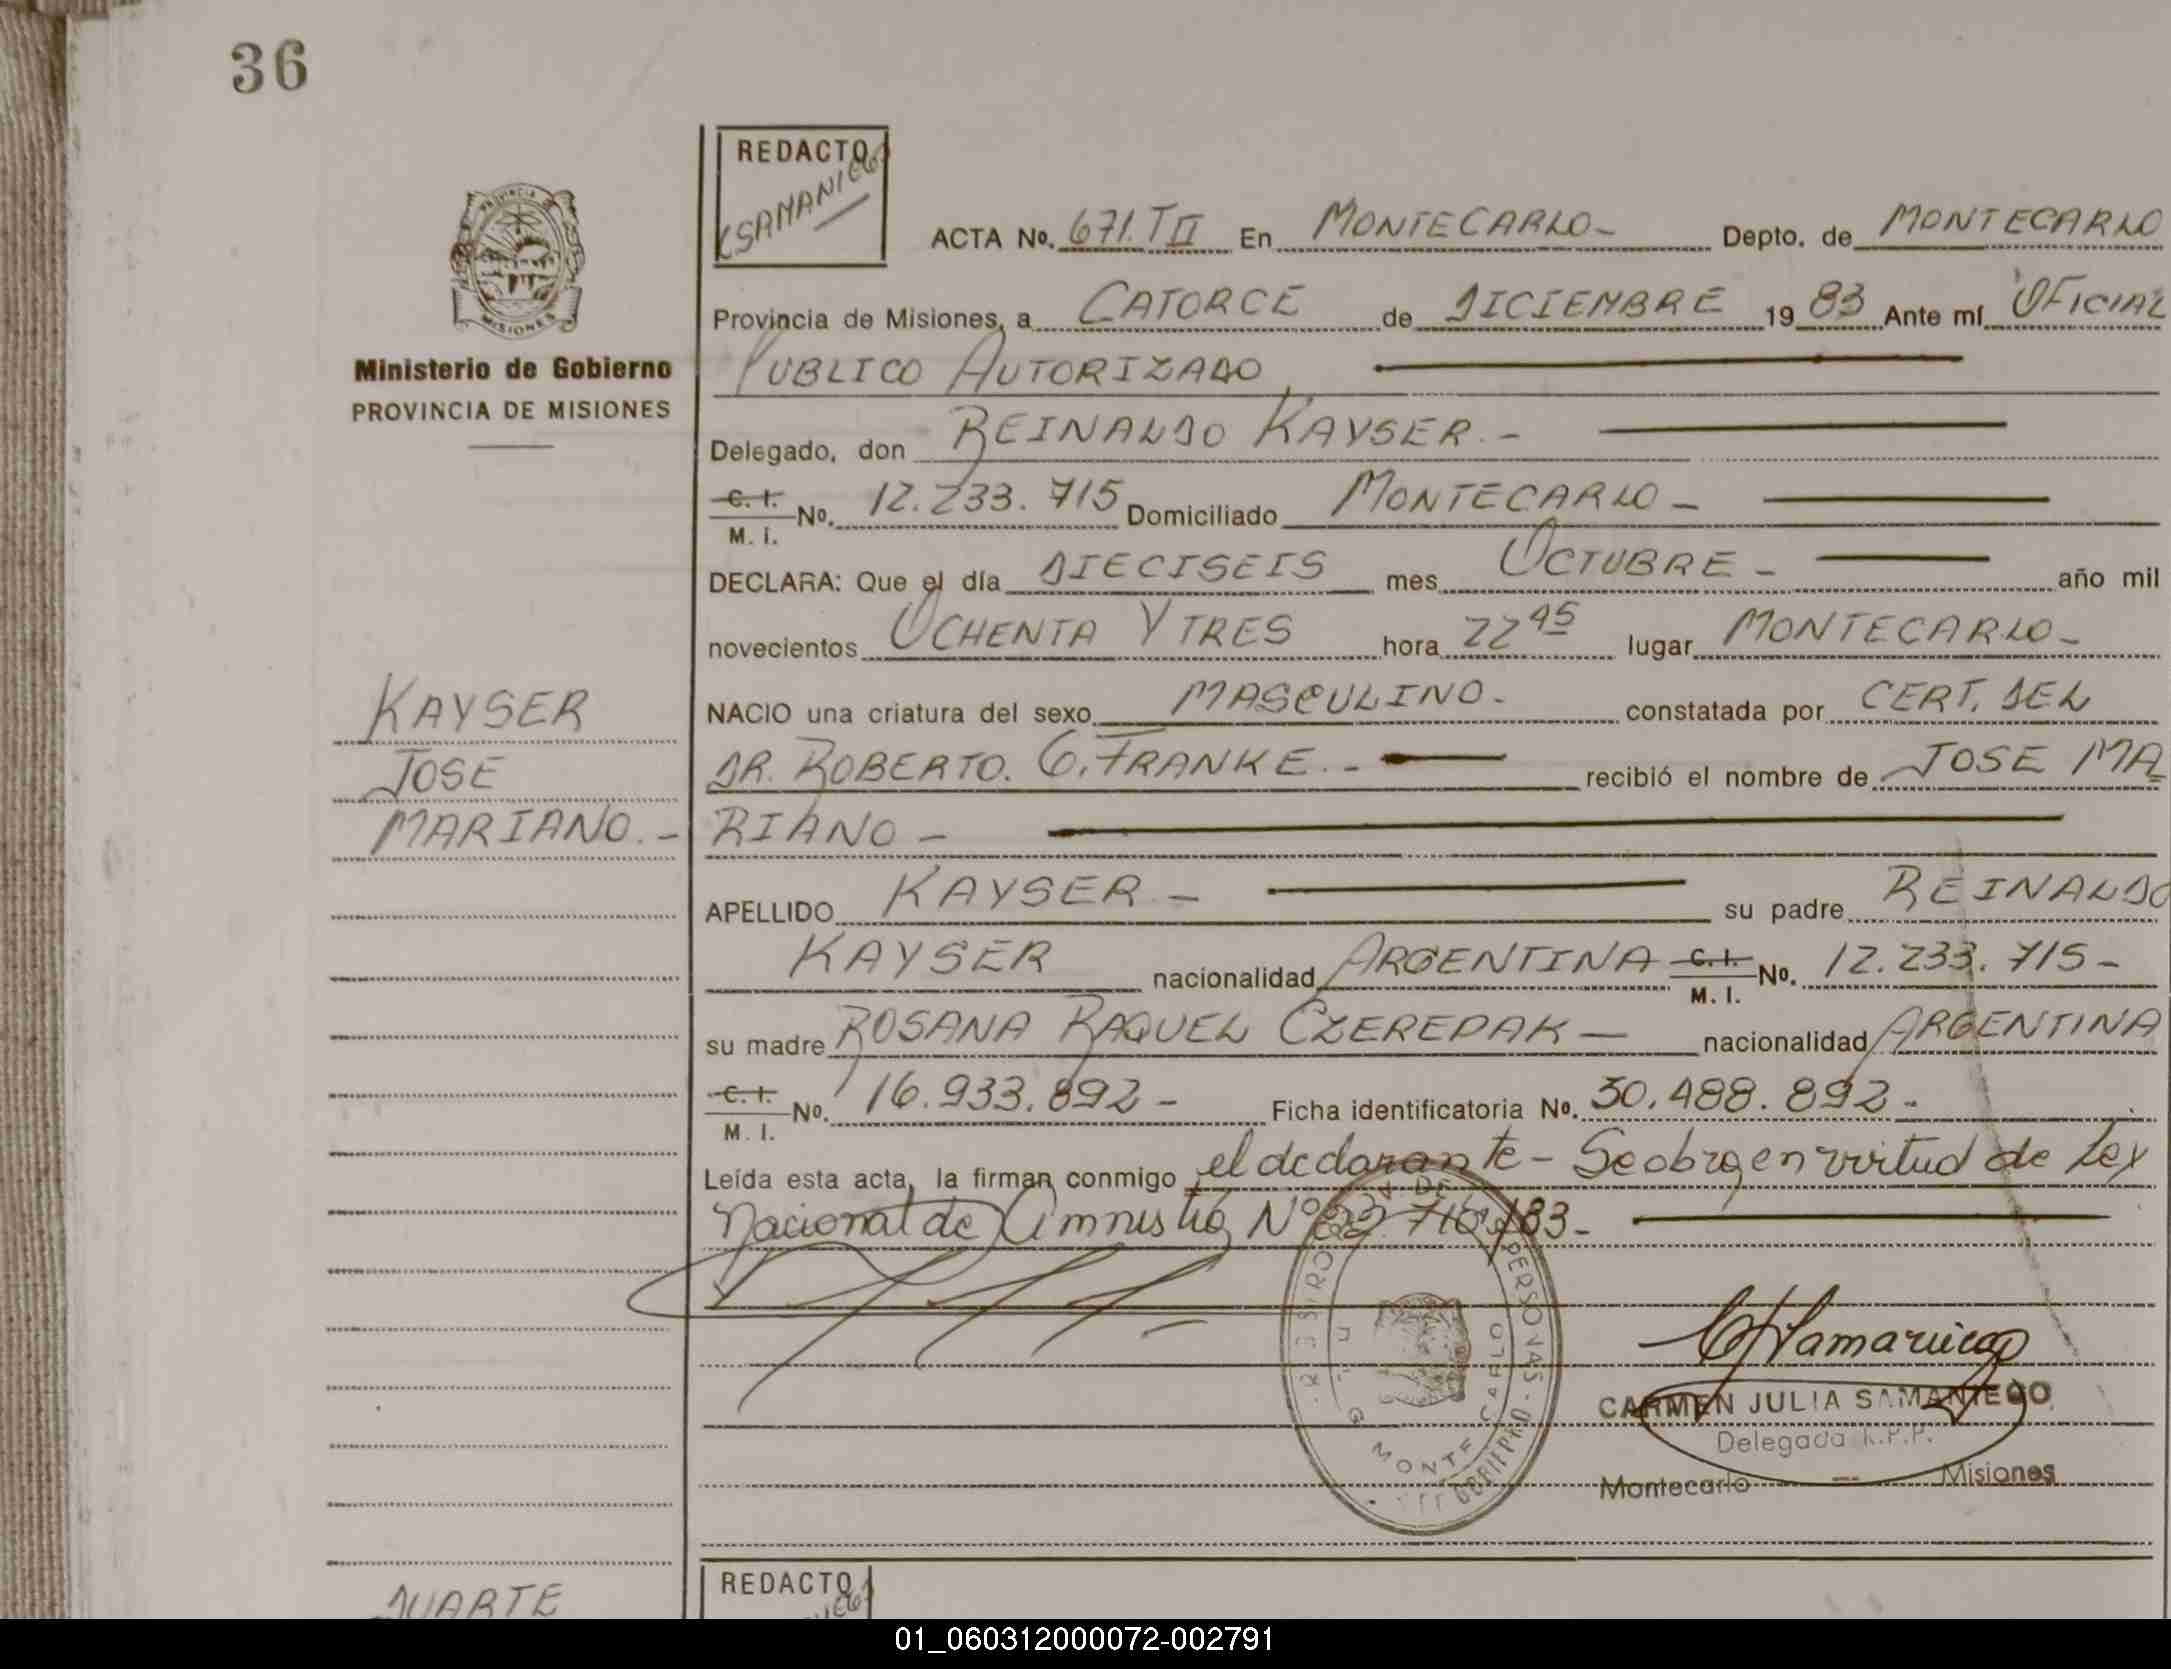 36
REDACTO
SAMANIEGO
ACTA No. 671. T II En MONTECARLO- Depto. de MONTECARLO
PROVINCIA
MISIONES
Provincia de Misiones, a CATORCE de DICIEMBRE 19 83 Ante mí OFICIAL
Ministerio de Gobierno
PUBLICO AUTORIZADO
PROVINCIA DE MISIONES
Delegado, don REINALDO KAYSER.-
C. I. No. 12.233.715 Domiciliado MONTECARLO -
M. I.
DECLARA: Que el día DIECISEIS mes OCTUBRE - año mil
novecientos OCHENTA Y TRES hora 22 45 lugar MONTECARLO-
KAYSER
NACIO una criatura del sexo MASCULINO- constatada por CERT. DEL
JOSE
DR. ROBERTO. G. FRANKE.- recibió el nombre de JOSE MA
MARIANO.-
RIANO -
APELLIDO KAYSER - su padre REINALDO
KAYSER nacionalidad ARGENTINA C. I. No. 12.233.715-
M. I.
su madre ROSANA RAQUEL CZEREPAK - nacionalidad ARGENTINA
C. I. No. 16.933.892 - Ficha identificatoria No. 30.488.892-
M. I.
Leída esta acta, la firman conmigo el declarante - Se obra en virtud de Ley
Nacional de Amnistia Nº 22.710/83-
PERSONAS
MONTE CARLO
CJSamaniego
CARMEN JULIA SAMANIEGO
Delegada R.P.P.
Montecarlo - Misiones
REDACTO
DUARTE
01_060312000072-002791